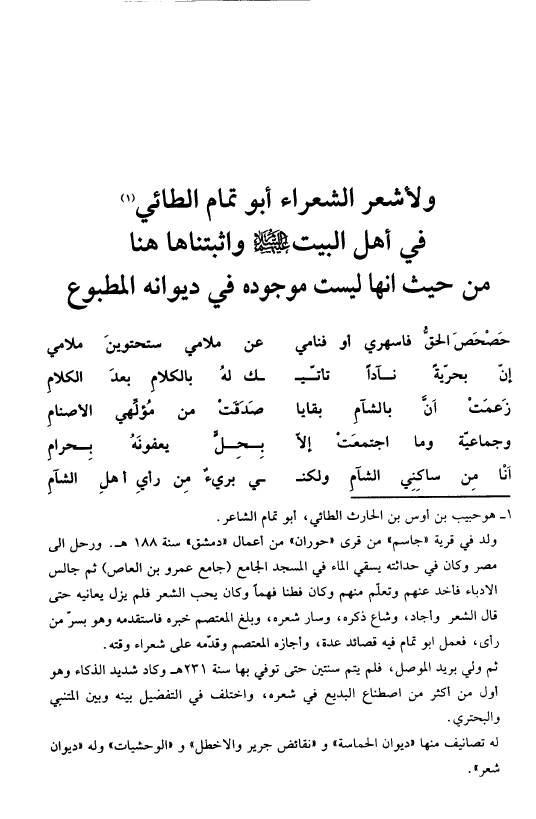 ولأشعر الشعراء أبو تمام الطائي(١)
في أهل البيت عليهم السلام واثبتناها هنا
من حيث انها ليست موجوده في ديوانه المطبوع
حَصْحَصَ الحَقُّ فاسهري أو فنامي عن ملامي ستحتوينَ ملامي
إنّ بحريّةً نـآداً تأتـيـ ـك لهُ بالكلامِ بعدَ الكلامِ
زَعمَتْ انَّ بالشآمِ بقايا صدَقَتْ من مُؤلّهي الاصنامِ
وجماعيّة وما اجتمعَتْ إلاّ بِـحِـلٍّ يعفونَهُ بِـحرامِ
أنَا مِن ساكنِي الشآمِ ولكنـ ـي بريءٌ مِن رأي أهلِ الشآمِ
١ـ هو حبيب بن أوس بن الحارث الطائي، أبو تمام الشاعر.
ولد في قرية «جاسم» من قرى «حوران» من أعمال «دمشق» سنة ١٨٨ هـ. ورحل الى
مصر وكان في حداثته يسقي الماء في المسجد الجامع (جامع عمرو بن العاص) ثم جالس
الادباء فأخد عنهم وتعلّم منهم وكان فطنا فهماً وكان يحب الشعر فلم يزل يعانيه حتى
قال الشعر وأجاد، وشاع ذكره، وسار شعره، وبلغ المعتصم خبره فاستقدمه وهو بسرّ من
رأى، فعمل ابو تمام فيه قصائد عدة، وأجازه المعتصم وقدّمه على شعراء وقته.
ثم ولي بريد الموصل، فلم يتم سنتين حتى توفي بها سنة ٢٣١هـ وكاد شديد الذكاء وهو
أول من أكثر من اصطناع البديع في شعره، واختلف في التفضيل بينه وبين المتنبي
والبحتري.
له تصانيف منها «ديوان الحماسة» و «نقائض جرير والاخطل» و «الوحشيات» وله «ديوان
شعر».